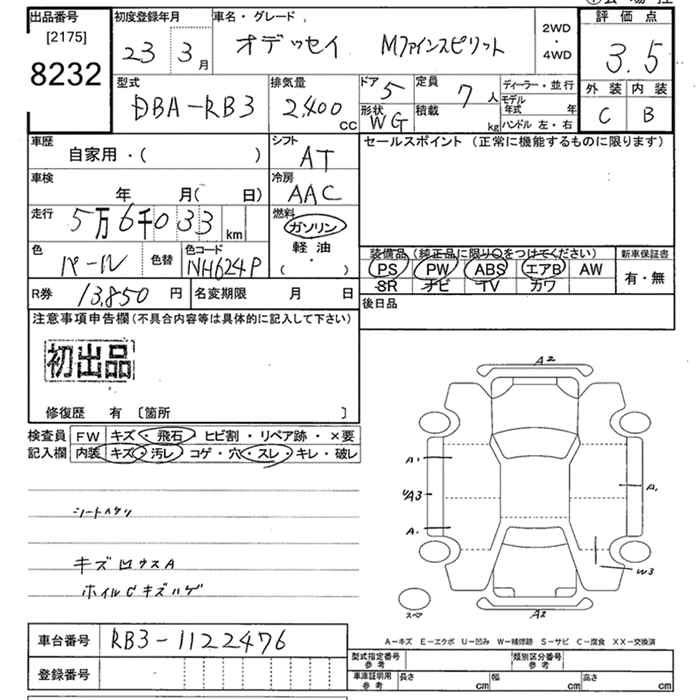 出品番号 初度登録年月 車名・グレード 評価点
[2175] 23年 3月 オデッセイ Mファインスピリット 2WD・4WD 3.5
8232
型式 排気量 ドア 5 定員 7人 ディーラー・並行 外装 内装
DBA-RB3 2,400cc 形状 WG 積載 kg モデル年式 年 C B
ハンドル 左・右
車歴 シフト セールスポイント (正常に機能するものに限ります)
自家用・( ) AT
車検 年 月( 日) 冷房 AAC
走行 5万6千033km 燃料 ガソリン
軽油
( ・ )
色 パール 色替 色コード NH624P
装備品 (純正品に限り○をつけてください) 新車保証書
PS PW ABS エアB AW 有・無
SR ナビ TV カワ
R券 13,850円 名変期限 月 日 後日品
注意事項申告欄 (不具合内容等は具体的に記入して下さい)
初出品
修復歴 有 〔箇所 〕
検査員 FW キズ・飛石・ヒビ割・リペア跡・×要
記入欄 内装 キズ・汚レ・コゲ・穴・スレ・キレ・破レ
キズ凹ウスA
ホイルCキズハゲ
A2
A1
A3
A1
W3
A2
スペア
A-キズ E-エクボ U-凹み W-補修跡 S-サビ C-腐食 XX-交換済
車台番号 RB3-1122476
型式指定番号 参考 類別区分番号 参考
登録番号
車庫証明用 参考 長さ cm 幅 cm 高さ cm